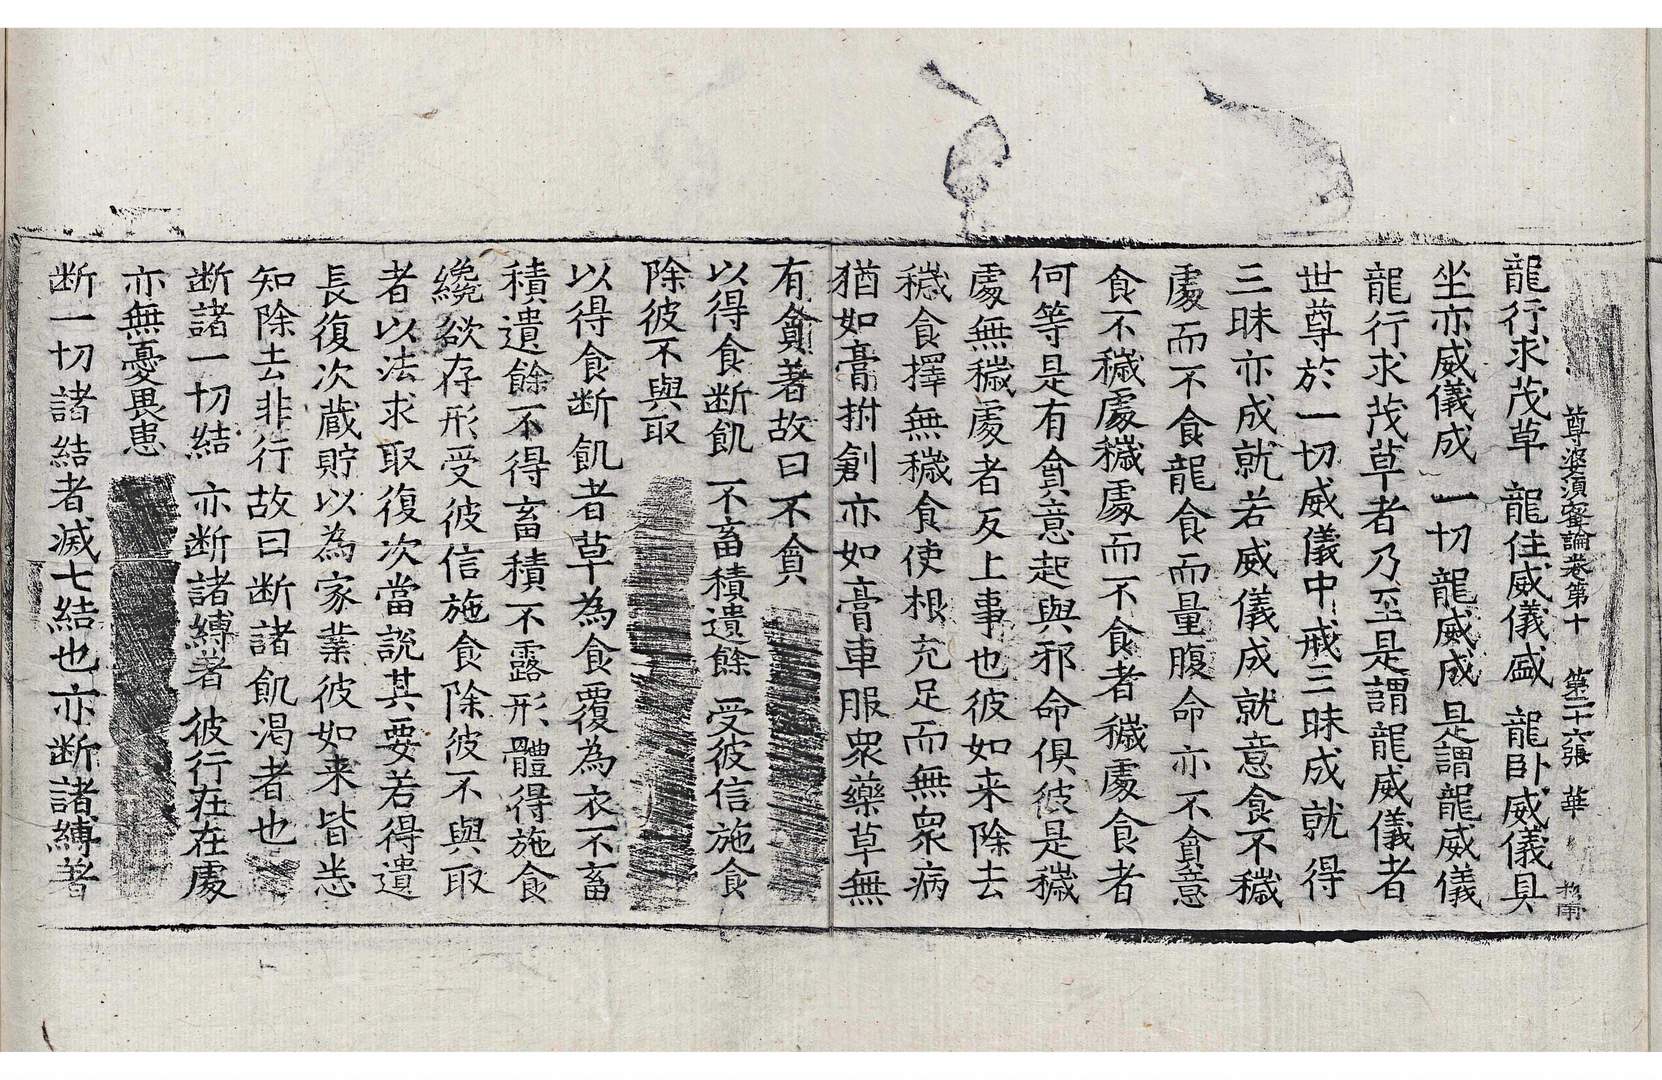 尊婆須蜜論卷第十　第二十六張　華
龍行求茂草　龍住威儀盛　龍臥威儀具
坐亦威儀成　一切龍威成　是謂龍威儀
龍行求茂草者乃至是謂龍威儀者
世尊於一切威儀中戒三昧成就得
三昧亦成就若威儀成就意食不穢
處而不食龍食而量腹命亦不貪意
食不穢處穢處而不食者穢處食者
何等是有貪意起與邪命俱彼是穢
處無穢處者反上事也彼如来除去
穢食擇無穢食使根充足而無衆病
猶如膏拊創亦如膏車服衆藥草無
有貪著故曰不貪
以得食断飢　不畜積遺餘　受彼信施食
除彼不與取
以得食断飢者草為食覆為衣不畜
積遺餘不得畜積不露形體得施食
纔欲存形受彼信施食除彼不與取
者以法求取復次當說其要若得遺
長復次蔵貯以為家業彼如来皆悉
知除去非行故曰断諸飢渴者也
断諸一切結　亦断諸縛著　彼行在在處
亦無憂畏恚
断一切諸結者滅七結也亦断諸縛著